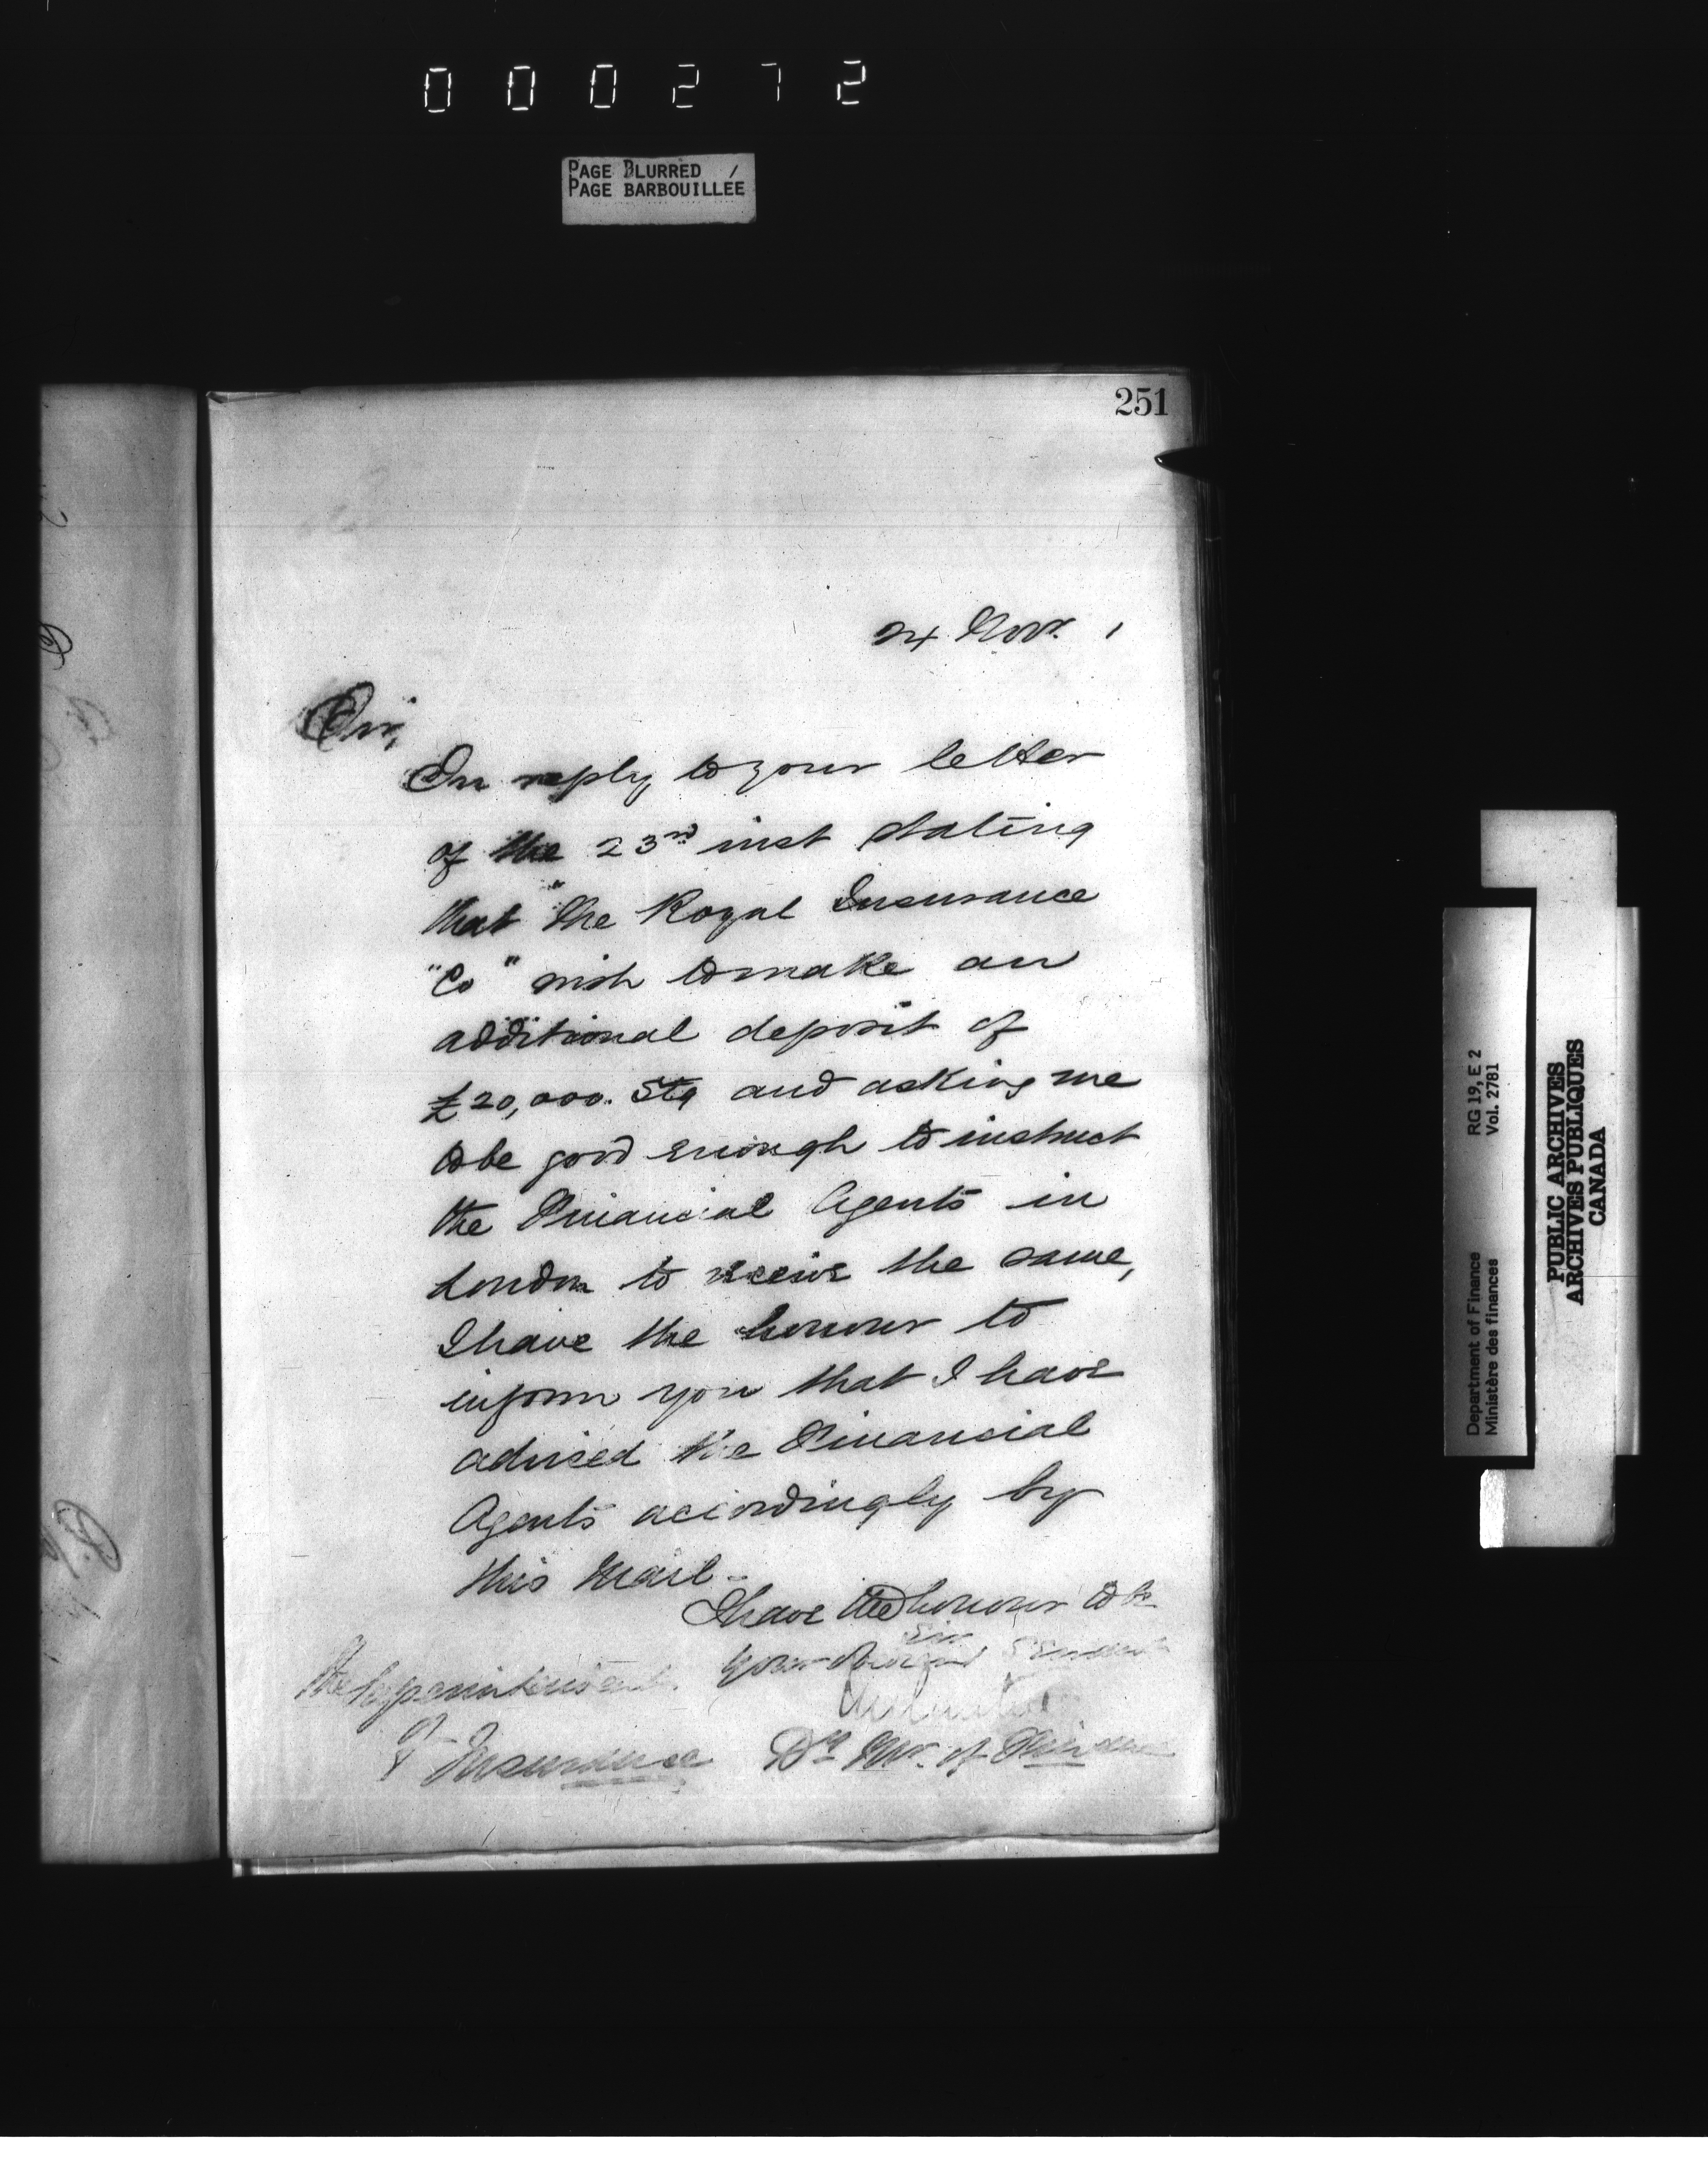 000272
PAGE BLURRED
PAGE BARBOUILLÉE
251
24 Nov. 1
Sir,
In reply to your letter
of the 23rd inst stating
that "the Royal Insurance
"Co" wish to make an
additional deposit of
£20,000. Stg and asking me
to be good enough to instruct
the Financial Agents in
London to receive the same,
I have the honour to
inform you that I have
advised the Financial
Agents accordingly by
this Mail-
I have the honour to be
Sir
Your Obedient Servant
The Superintendent
of
Insurance
Dy Mr. of Finance
Department of Finance
Ministère des finances
RG 19, E 2
Vol. 2781
PUBLIC ARCHIVES
ARCHIVES PUBLIQUES
CANADA